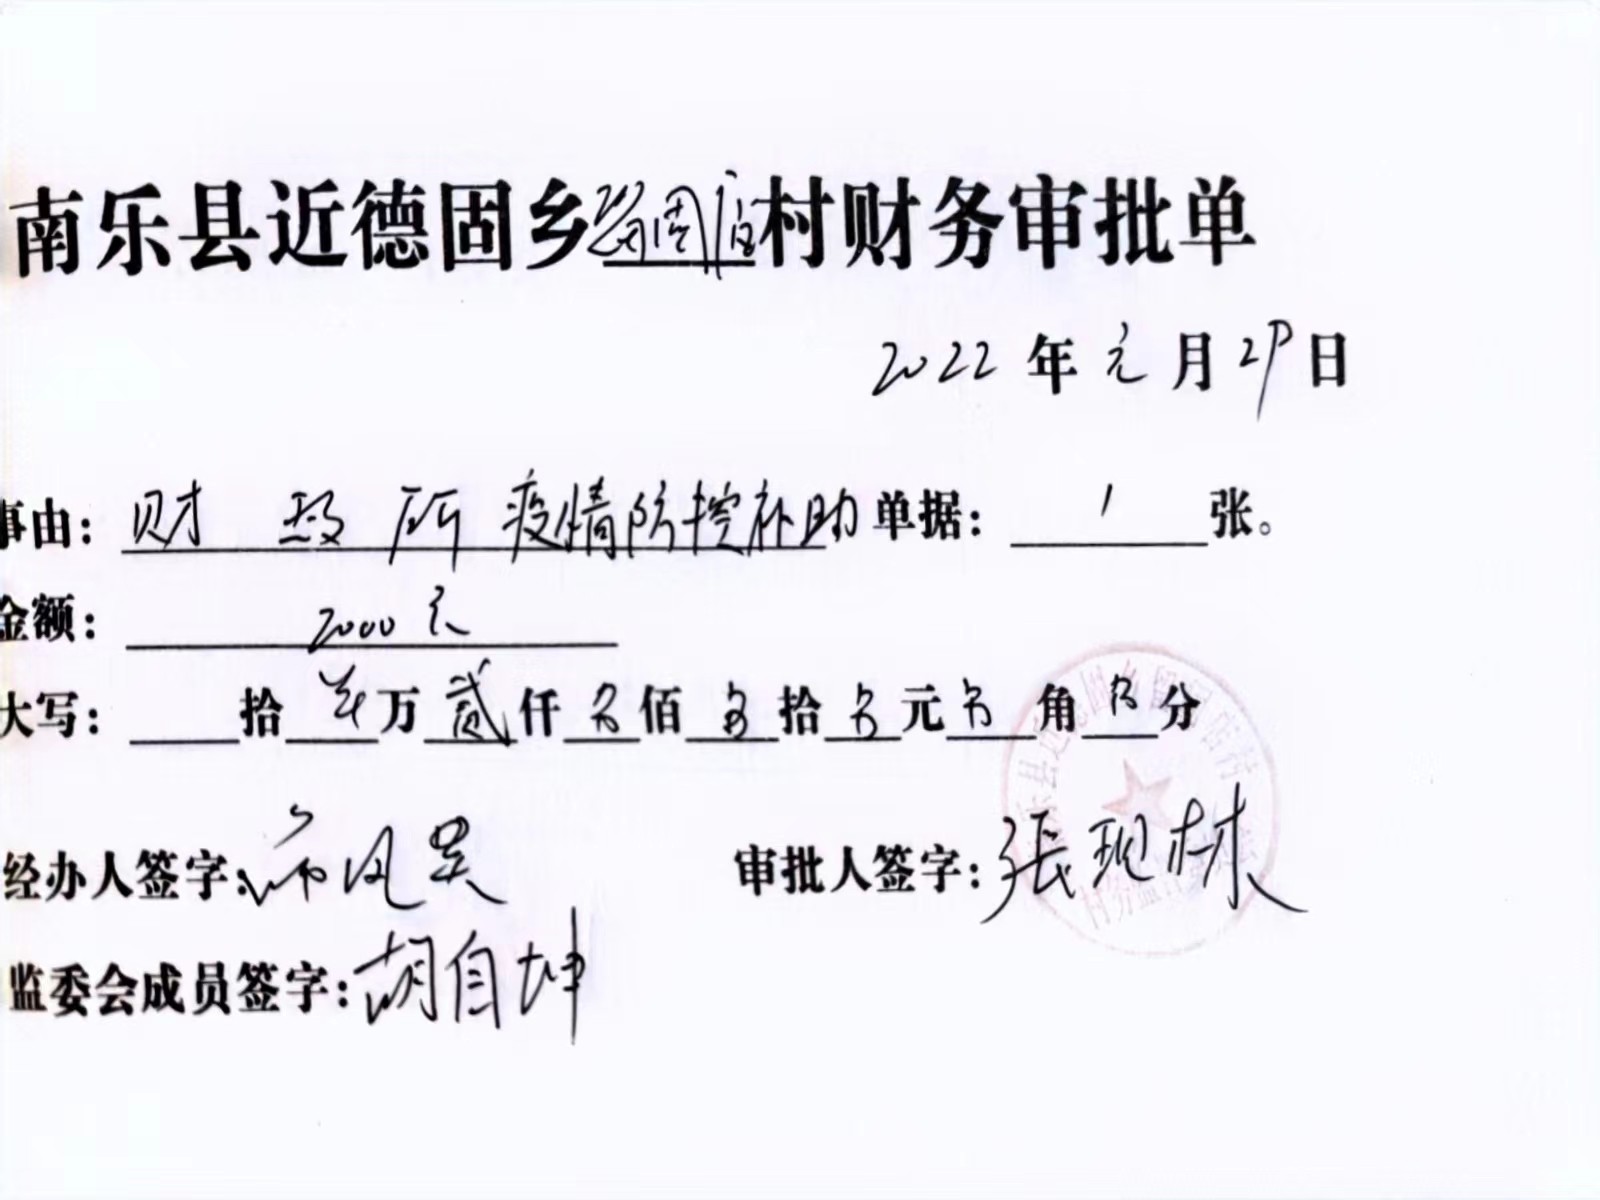 南乐县近德固乡留固店村财务审批单
2022年元月29日
事由：财政所疫情防控补助单据：1张。
金额：2000元
大写：拾万贰仟另佰另拾另元另角另分
经办人签字：
审批人签字：張现林
监委会成员签字：胡自坤